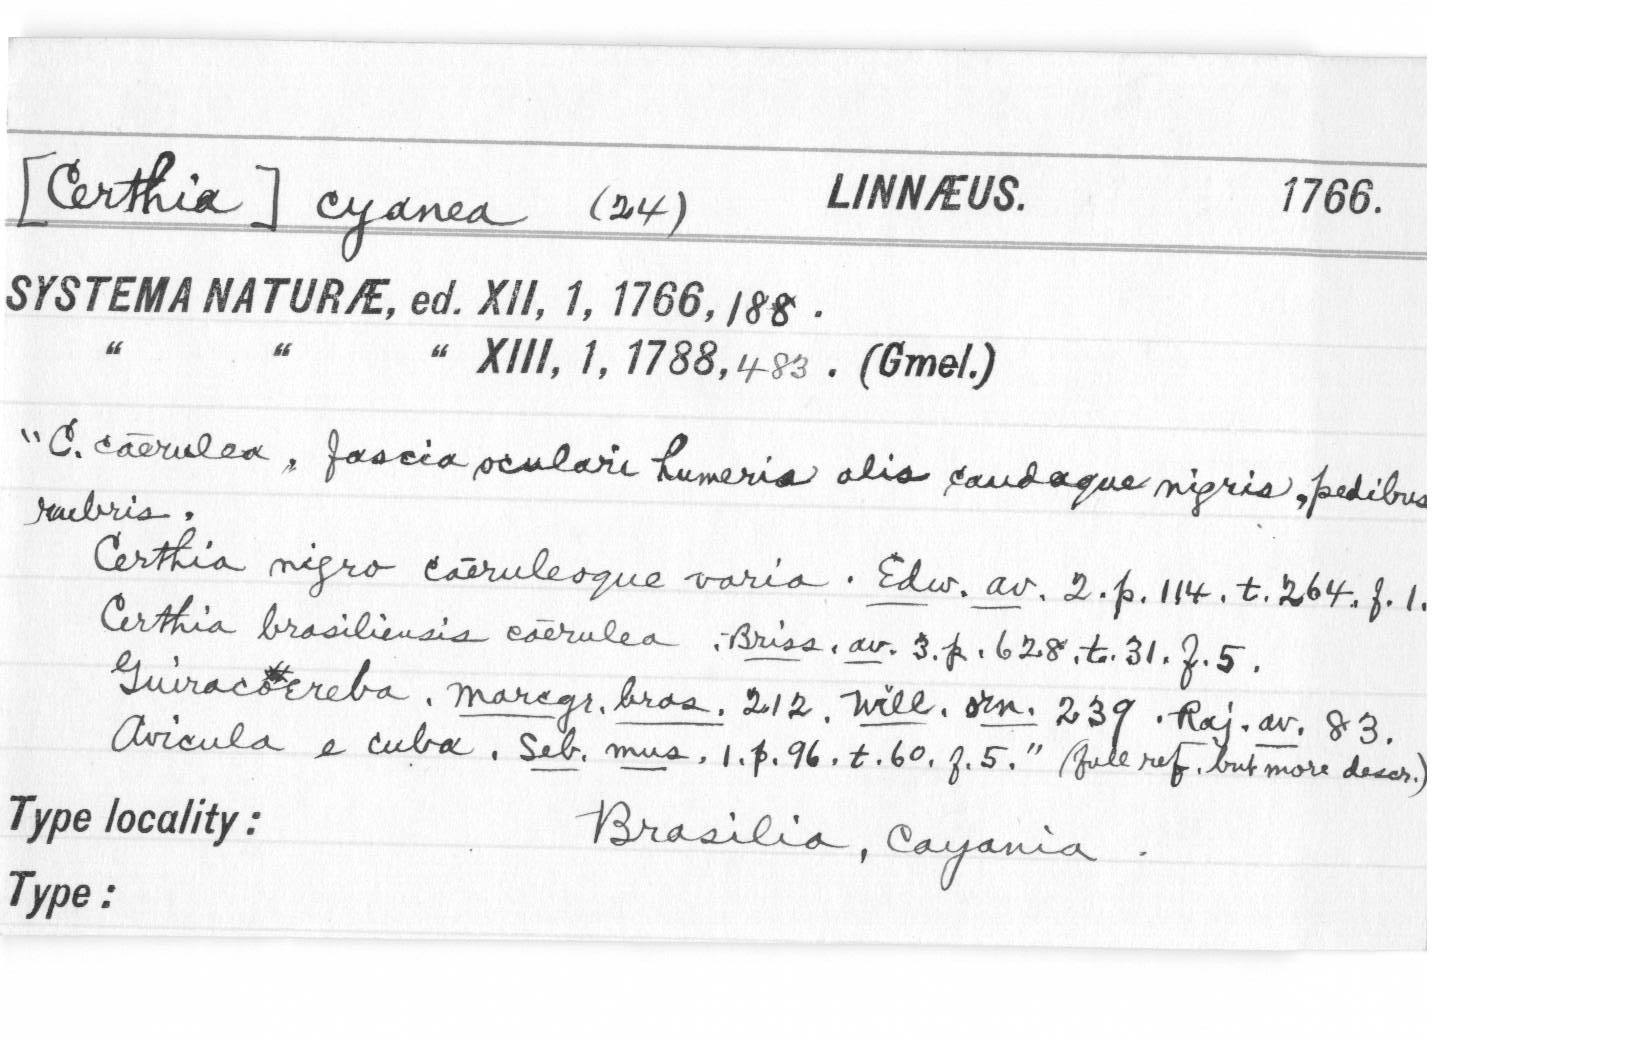 [Certhia] cyanea (24) LINNÆUS. 1766.
SYSTEMA NATURÆ, ed. XII, 1, 1766, 188.
“ “ “ XIII, 1, 1788, 483. (Gmel.)
"C. cāerulea, fascia oculari humeris alis caudaque nigris, pedibus
rubris.
Certhia nigro cāeruleoque varia. Edw. av. 2. p. 114. t. 264. f. 1.
Certhia brasiliensis cāerulea. Briss. av. 3. p. 628. t. 31. f. 5.
Guiracoereba. Marcgr. bras. 212. Will. orn. 239. Raj. av. 83.
Avicula e cuba. Seb. mus. 1. p. 96. t. 60. f. 5." (full ref. but more descr.)
Type locality: Brasilia, Cayania.
Type: